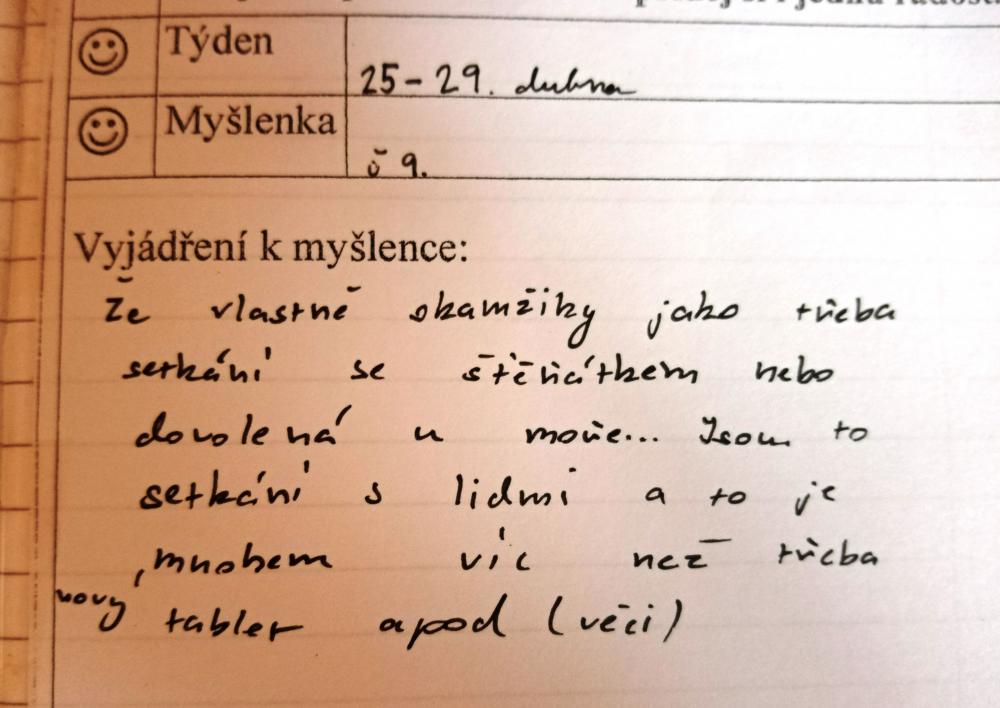 Týden 25-29. dubna
Myšlenka č 9.
Vyjádření k myšlence:
Že vlastně okamžiky jako třeba
setkání se štěňátkem nebo
dovolená u moře... Jsou to
setkání s lidmi a to je
mnohem víc než třeba
nový tablet apod (věci)